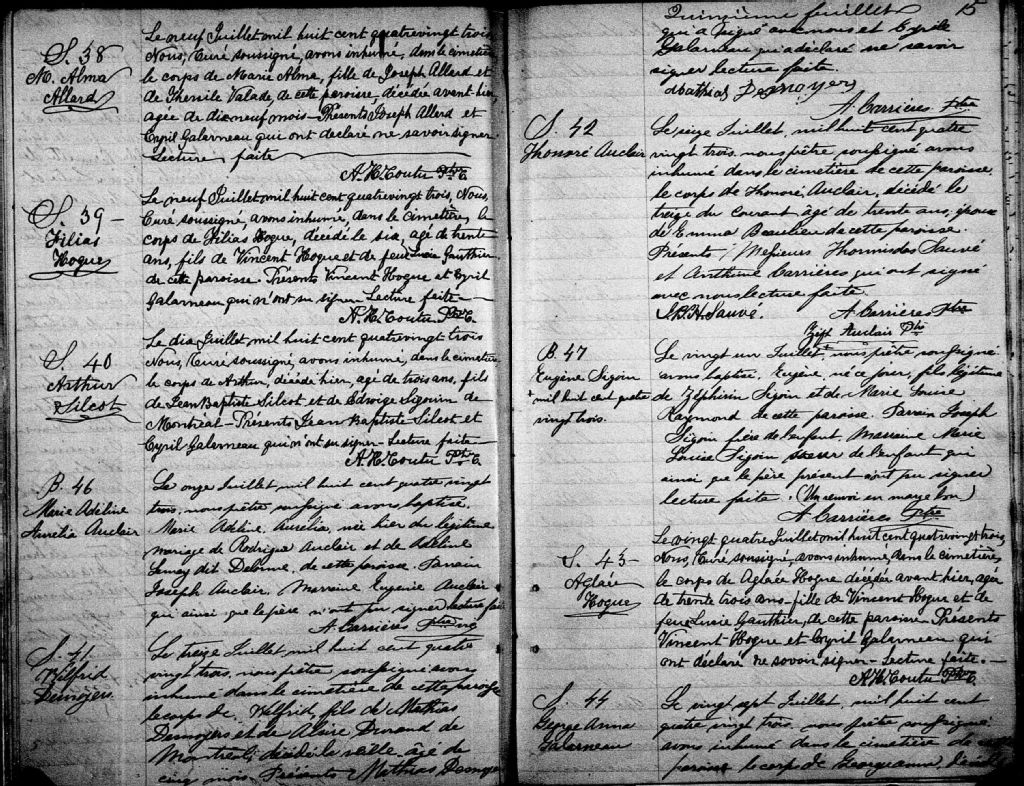 S. 38
M. Alma
Allard
Le neuf Juillet mil huit cent quatrevingt trois
Nous, Curé soussigné, avons inhumé, dans le cimetière
le corps de Marie Alma, fille de Joseph Allard et
de Thersile Valade, de cette paroisse, décédée avant-hier,
agée de dix neuf mois - Présents Joseph Allard et
Cyril Galarneau qui ont declaré ne savoir signer
Lecture faite
A. H. Coutu Ptre C
S. 39
Filias
Hogue
Le neuf Juillet mil huit cent quatrevingt trois, Nous,
Curé soussigné, avons inhumé, dans le Cimetière, le
corps de Filias Hogue, décédé le six, agé de trente
ans, fils de Vincent Hogue et de feue Lucie Gauthier,
de cette paroisse. Présents Vincent Hogue et Cyril
Galarneau qui n'ont su signer Lecture faite
A. H. Coutu Ptre C.
S. 40
Arthur
Silcot
Le dix Juillet mil huit cent quatrevingt trois
Nous, Curé soussigné, avons inhumé, dans le cimetière
le corps de Arthur, décédé hier, agé de trois ans, fils
de Jean Baptiste Silcot et de Edwige Sigouin de
Montréal - Présents Jean Baptiste Silcot et
Cyril Galarneau qui n'ont su signer - Lecture faite
A. H. Coutu Ptre C.
B. 46
Marie Adéline
Aurélia Auclair
Le onze Juillet mil huit cent quatre vingt
trois, nous pêtre soussigné avons baptisé
Marie Adéline, Aurélia, née hier du légitime
mariage de Rodrigue Auclair et de Adeline
dit Delorme, de cette paroisse. Parrain
Joseph Auclair. Marraine Eugenie Auclair
qui ainsi que le père n'ont pu signer lecture faite
A. Carrières Ptre
S. 41
Wilfrid
Desnoyers
Le treize Juillet mil huit cent quatre
vingt trois, nous pêtre soussigné avons
inhumé dans le cimetière de cette paroisse
le corps de Wilfrid, fils de Mathias
Desnoyers et de Durand de
Montreal, décédé la veille, âgé de
cinq mois. Présents Mathias Desnoyers
Quinzième feuillet 15
qui a signé avec nous et Cyrile
Galarneau qui a déclaré ne savoir
signer lecture faite.
Mathias Desnoyers
A. Carrières Ptre
S. 42
Honoré Auclair
Le seize Juillet, mil huit cent quatre
vingt trois, nous pêtre soussigné avons
inhumé dans le cimetière de cette paroisse
le corps de Honoré Auclair, décédé le
treize du courant âgé de trente ans, époux
de Emma Beaulieu de cette paroisse.
Présents Messieurs Hormisdas Sauvé
et Anthime Carrières qui ont signé
avec nous lecture faite
H. Sauvé. A. Carrières Ptre
Auclair Ptre
B. 47
Eugène Sigoin
+ mil huit cent quatre
vingt trois.
Le vingt un Juillet + nous pêtre soussigné
avons baptisé Eugène né ce jour, fils légitime
de Zéphirin Sigoin et de Marie Louise
Raymond de cette paroisse. Parrain Joseph
Sigoin frère de l'enfant, Marraine Marie
Louise Sigoin soeur de l'enfant qui
ainsi que le père présent n'ont pu signer
lecture faite. (Un renvoi en marge bon)
A. Carrières Ptre
S. 43
Aglaée
Hogue
Le vingt quatre Juillet mil huit cent quatrevingt trois,
Nous, Curé soussigné, avons inhumé, dans le cimetière,
le corps de Aglaée Hogue décédée avant hier, agée
de trente trois ans - fille de Vincent Hogue et de
feue Lucie Gauthier, de cette paroisse Présents
Vincent Hogue et Cyril Galarneau qui
ont déclaré ne savoir signer - Lecture faite. -
A. H. Coutu Ptre C.
S. 44
George Anna
Galarneau
Le vingt sept Juillet, mil huit cent
quatre vingt trois, nous pêtre soussigné
avons inhumé dans le cimetière de cette
paroisse le corps de Georgeanna décédée